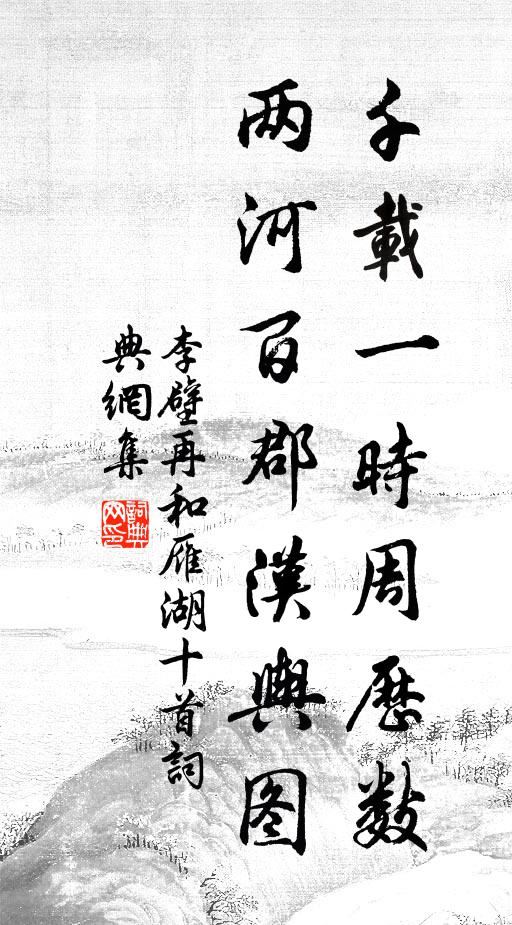 千載一時周歷数
两河百郡漢輿图
李壁再和雁湖十首詞
典網集
詞典网印